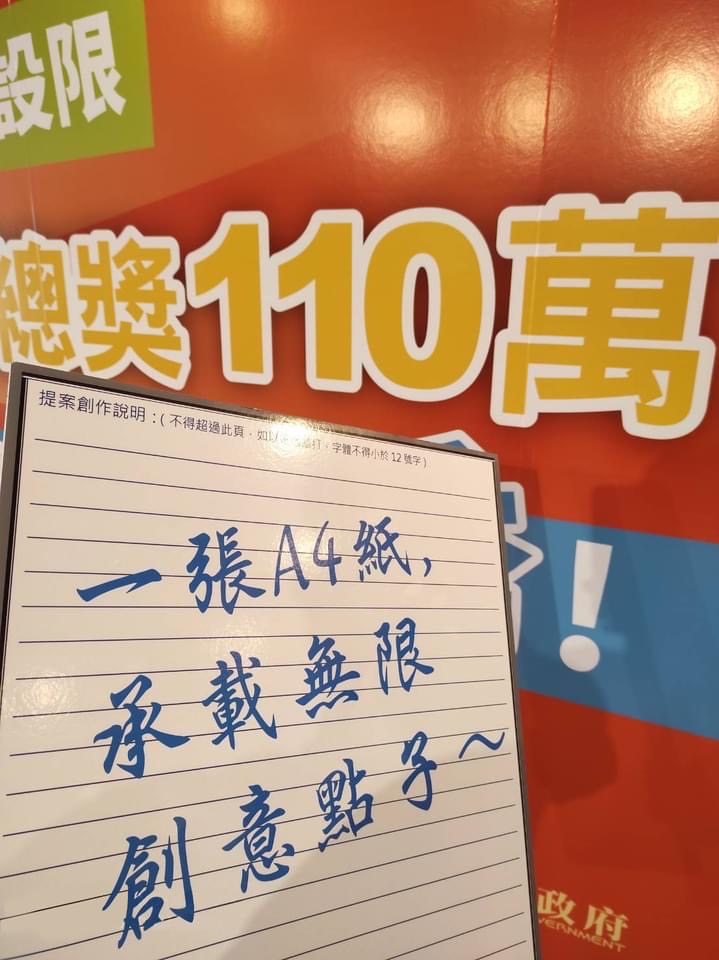 設限
總獎110萬
！
提案創作說明：（不得超過此頁，如以電腦繕打，字體不得小於12號字）
一張A4紙，
承載無限
創意點子～
政府
VERNMENT